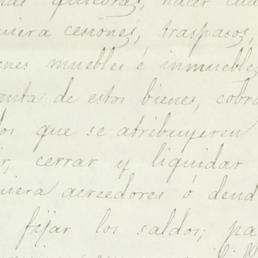 quiebras, hacer cua
uiera cesiones, traspasos,
enes muebles é inmuebles
enta de estos bienes, cobra
dos que se atribuyeren
ir, cerrar y liquidar
uiera acreedores ó deud
fijar los saldos; pa